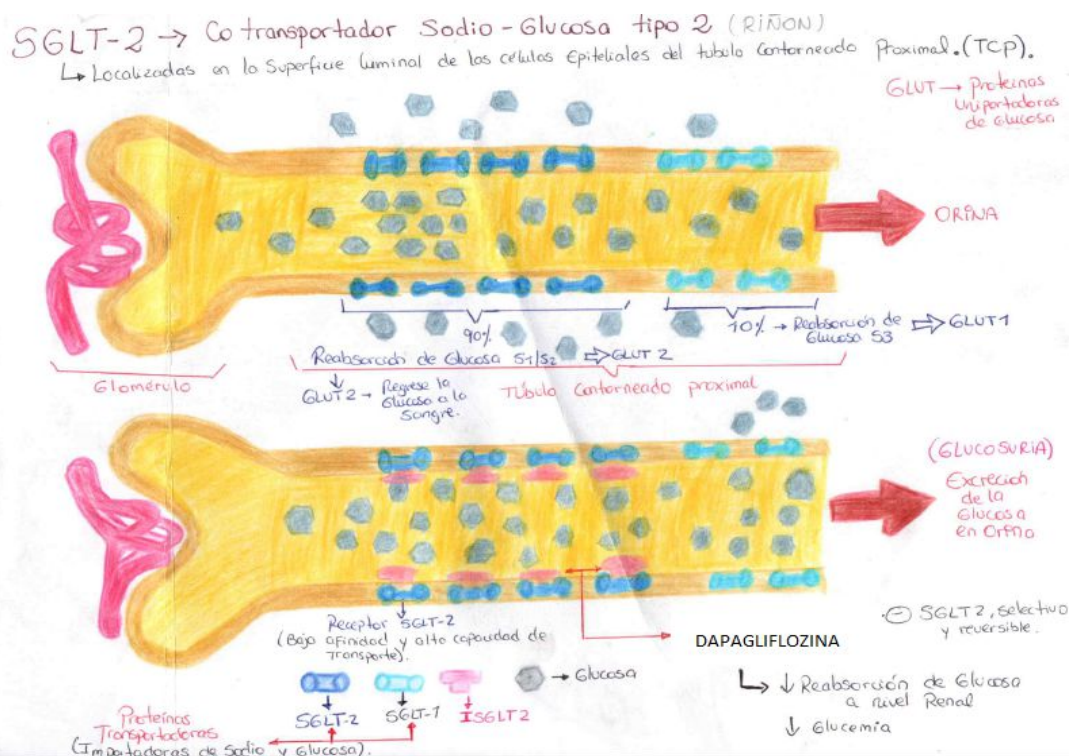 SGLT-2 → Cotransportador Sodio-Glucosa tipo 2 (RIÑON)
↳ Localizadas en la Superficie luminal de las células Epiteliales del tubulo Contorneado Proximal. (TCP).
GLUT → Proteinas
Uniportadoras
de Glucosa
ORINA
90%
10% → Reabsorción de
Glucosa S3
⇒ GLUT1
Reabsorción de Glucosa S1/S2 ⇒ GLUT 2
Glomérulo
GLUT2 → Regrese la
Glucosa a la
Sangre.
Túbulo Contorneado proximal
(GLUCOSURIA)
Excrecion
de la
Glucosa
en Orina
Receptor SGLT-2
(Baja afinidad y alta capacidad de
Transporte).
DAPAGLIFLOZINA
⊖ SGLT2, selectivo
y reversible.
→ Glucosa
SGLT-2
SGLT-1
ISGLT2
↳ ↓ Reabsorción de Glucosa
a nivel Renal
↓ Glucemia
Proteinas
Transportadoras
(Importadoras de Sodio y Glucosa).